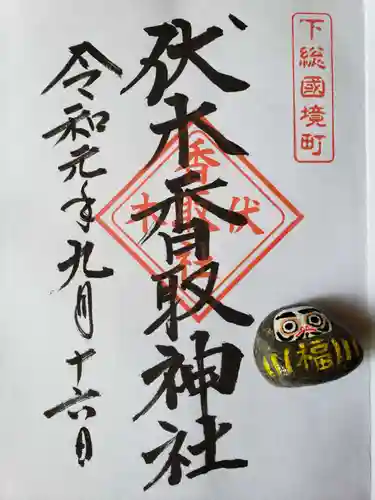 下総國境町
伏木香取神社
香取
伏木
神社
令和元年九月十六日
福